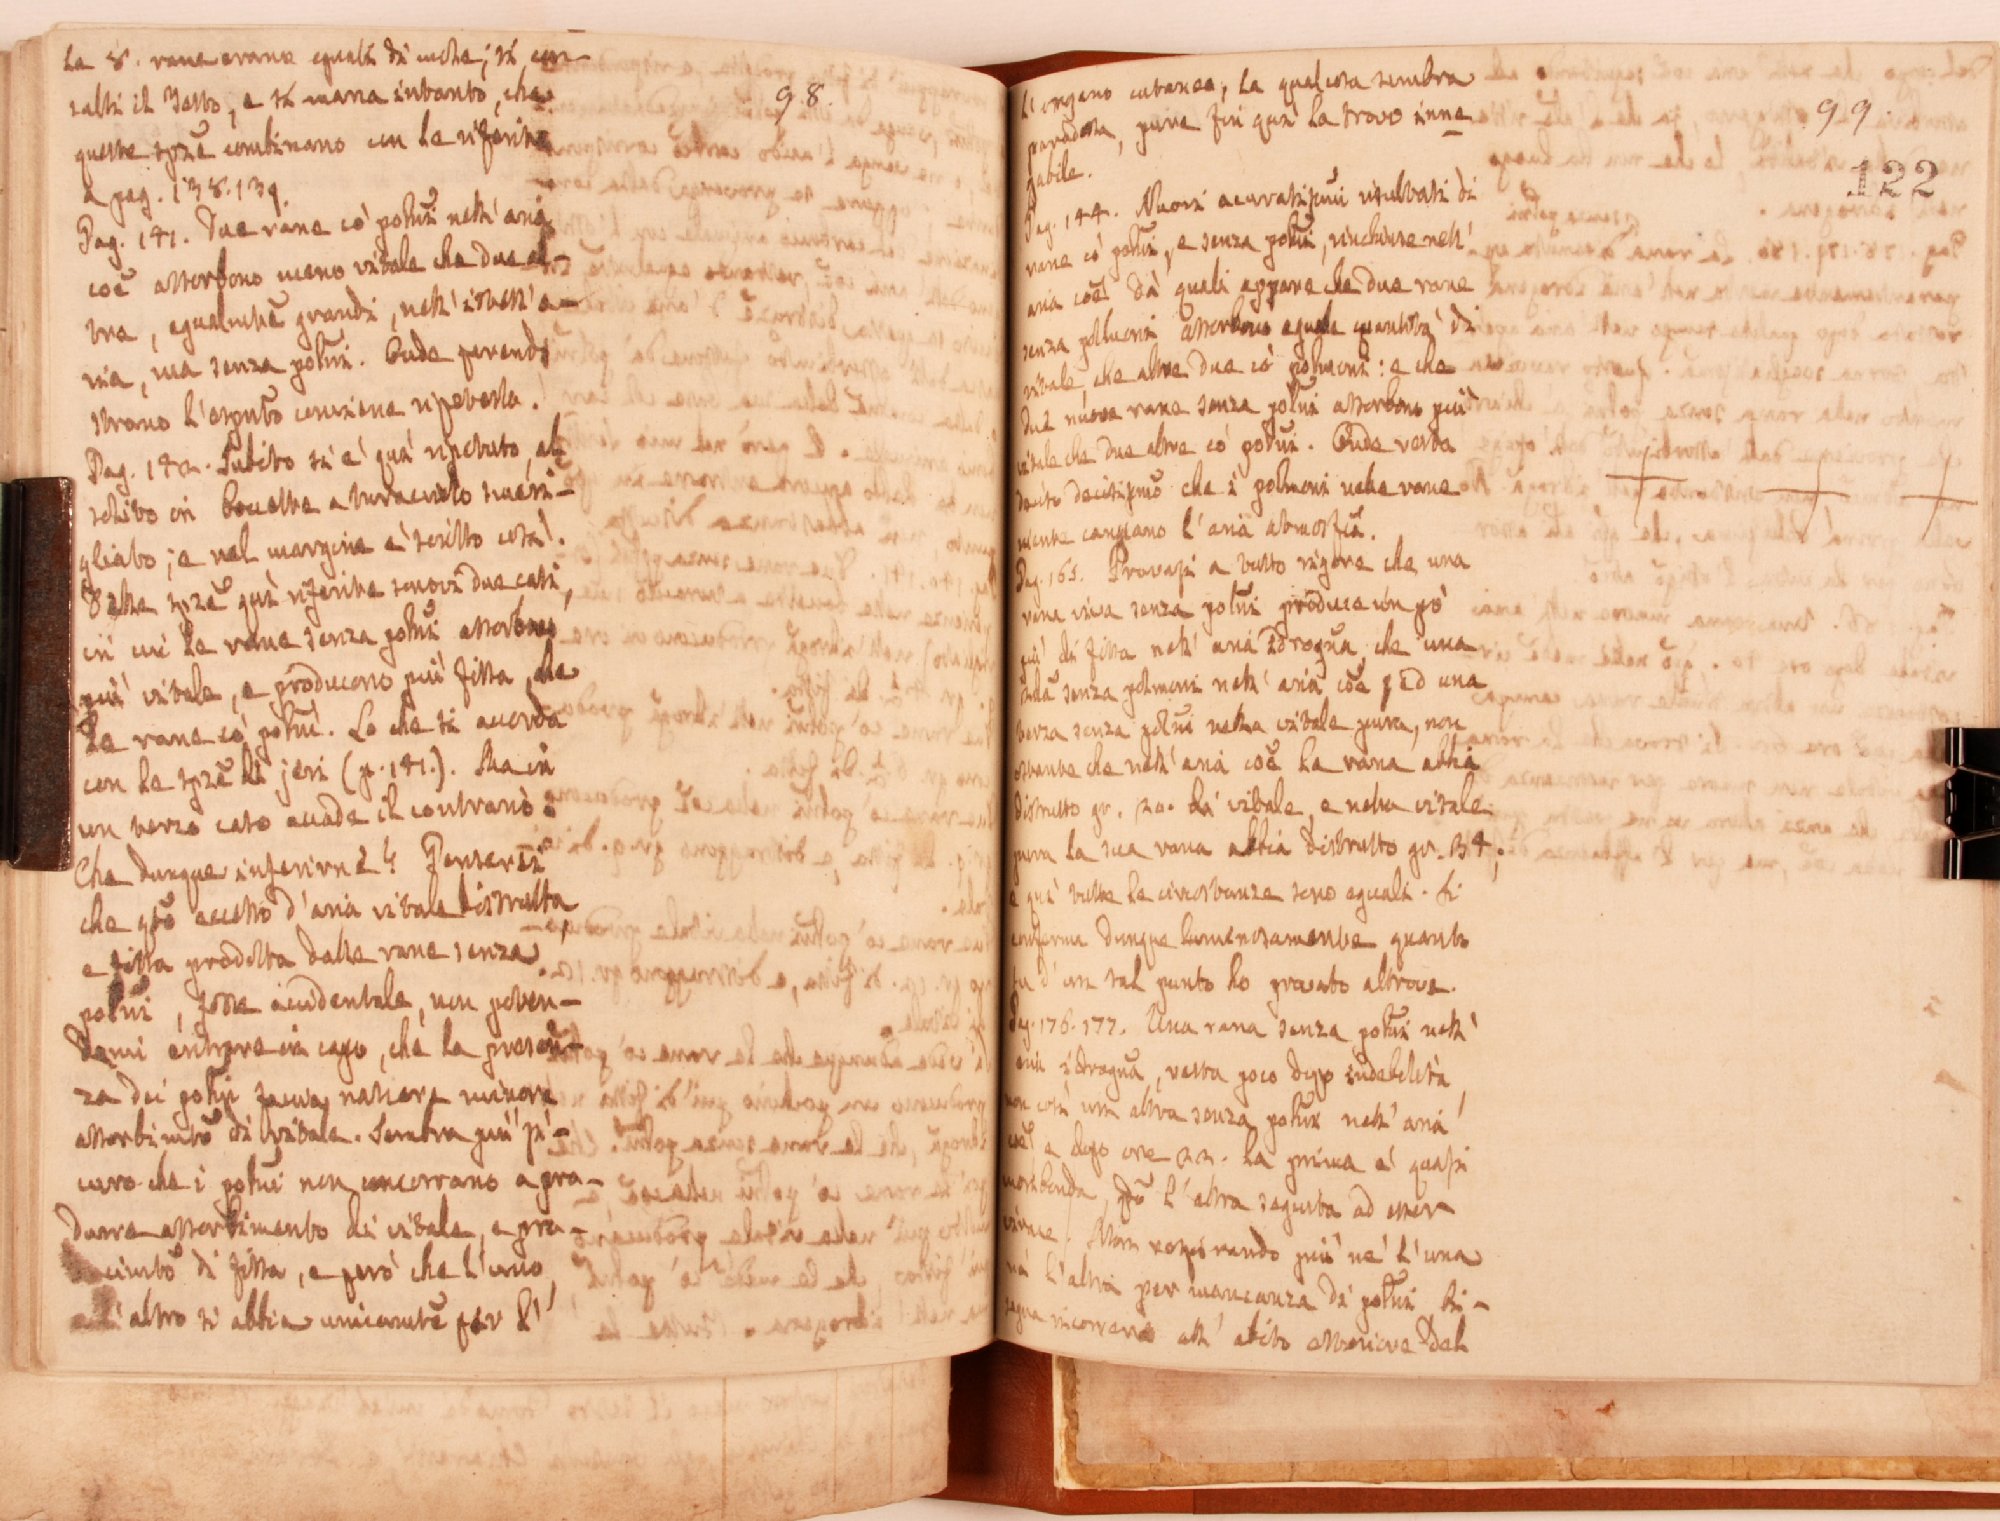 98.
le 8. rane erano eguali di mole; si con-
sulti il testo, e si marra intanto, che
queste spze combinano con le riferite
a pag. 138. 139.
Pag. 141. Due rane cò polm̃i nell' aria
coẽ assorbono meno vitale che due al-
tre, egualm̃te grandi, nell' istess' a-
ria, ma senza polm̃i. Onde parendo
strano l'esputo conviene ripeterlo.
Pag. 142. Subito si è quì ripetuto, al
solito in boccette a turacciolo smeri-
gliato; e nel margine è scritto così.
Dalle spzẽ quì riferite sonovi due casi,
in cui le rane senza polm̃i assorbono
più vitale, e producono più fissa, che
le rane cò polm̃i. Lo che si accorda
con le spzẽ di jeri (p. 141.). Ma in
un terzo caso accade il contrario.
Che dunque inferirne? Penserei
che qsto eccesso d'aria vitale distrutta
e fissa prodotta dalle rane senza
polm̃i, fosse accidentale, non poten-
domi entrare in capo, che la presen-
za dei polm̃i faccia nascere minore
assorbim̃to di vitale. Sembra più si-
curo che i polm̃i non concorrano a pro-
durre assorbimento di vitale, e pro-
ducim̃to di fissa, e però che l'uno
e l'altro si abbia unicam̃te per l'
99.
122
l'organo cutaneo, la qual cosa sembra
paradossa, pure fin quì la trovo inne-
gabile.
Pag. 144. Nuovi accuratissimi risultati di
rane cò polm̃i, e senza polm̃i, rinchiuse nell'
aria coẽ. Dà quali appare che due rane
senza polmoni assorbono eguale quantità di
vitale che altre due cò polmoni: e che
due nuove rane senza polm̃i assorbono più
vitale che due altre cò polm̃i. Onde resta
deciso decisis̃mo che i polmoni nelle rane
niente cangiano l'aria atmosfca.
Pag. 165. Provasi a tutto rigore che una
rana viva senza polm̃i produce un pò
più di fissa nell' aria idrogña che una
senza polmoni nell' aria coẽ, ed una
terza senza polm̃i nella vitale pura, non
ostante che nell' aria coẽ la rana abbia
distrutto gr. 20. di vitale, e nella vitale
pura la sua rana abbia distrutto gr. 34,
e quì tutte le circostanze sono eguali. Si
conferma dunque luminosamente quanto
su d'un tal punto ho provato altrove.
Pag. 176. 177. Una rana senza polm̃i nell'
aria idrogña, resta poco dopo indebolita,
non così un' altra senza polm̃i nell' aria
coẽ, e dopo ore 22. la prima è quasi
moribonda, qdo l'altra seguita ad esser
vivace. Non respirando più nè l'una
nè l'altra per mancanza di polm̃i bi-
sogna ricorrere all' abito esteriore del